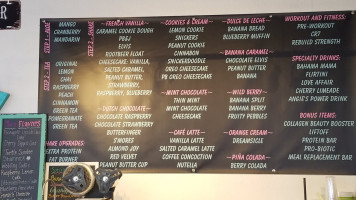 STEP 1 - ALOE
MANGO
CRANBERRY
MANDARIN
STEP 2 - TEA
ORIGINAL
LEMON
CHAI
RASPBERRY
PEACH
CINNAMON
GREEN TEA
POMEGRANATE
GREEN TEA
SHAKE UPGRADES
EXTRA PROTEIN
FAT BURNER
STEP 3 - SHAKE
~FRENCH VANILLA~
CARAMEL COOKIE DOUGH
PB&J
ELVIS
ROOTBEER FLOAT
CHEESECAKE: VANILLA,
SALTED CARAMEL,
PEANUT BUTTER,
STRAWBERRY,
RASPBERRY, BLUEBERRY
~DUTCH CHOCOLATE~
CHOCOLATE RASPBERRY
CHOCOLATE STRAWBERRY
BUTTERFINGER
S'MORES
ALMOND JOY
RED VELVET
PEANUT BUTTER CUP
~COOKIES & CREAM~
LEMON COOKIE
SNICKERS
PEANUT COOKIE
CINNABON
SNICKERDOODLE
OREO CHEESECAKE
PB OREO CHEESECAKE
~MINT CHOCOLATE~
THIN MINT
MINT OREO
CHOCOLATE MINT
~CAFÉ LATTE~
VANILLA LATTE
SALTED CARAMEL LATTE
COFFEE CONCOCTION
NUTELLA
~DULCE DE LECHE~
BANANA BREAD
BLUEBERRY MUFFIN
~BANANA CARAMEL~
CHOCOLATE ELVIS
PEANUT BUTTER
BANANA
~WILD BERRY~
STRAWBERRY SPLIT
BANANABERRY
FRUITY PEBBLES
~ORANGE CREAM~
DREAMSICLE
~PIÑA COLADA~
BERRY COLADA
WORKOUT AND FITNESS:
PRE-WORKOUT
CR7
REBUILD STRENGTH
SPECIALTY DRINKS:
BAHAMA MAMA
FLIRTINI
LOVE AFFAIR
CHERRY LIMEADE
ANGIE'S POWER DRINK
BONUS ITEMS:
COLLAGEN BEAUTY BOOSTER
LIFTOFF
PROTEIN BAR
PRO-BIOTIC
MEAL REPLACEMENT BAR
FLAVORS